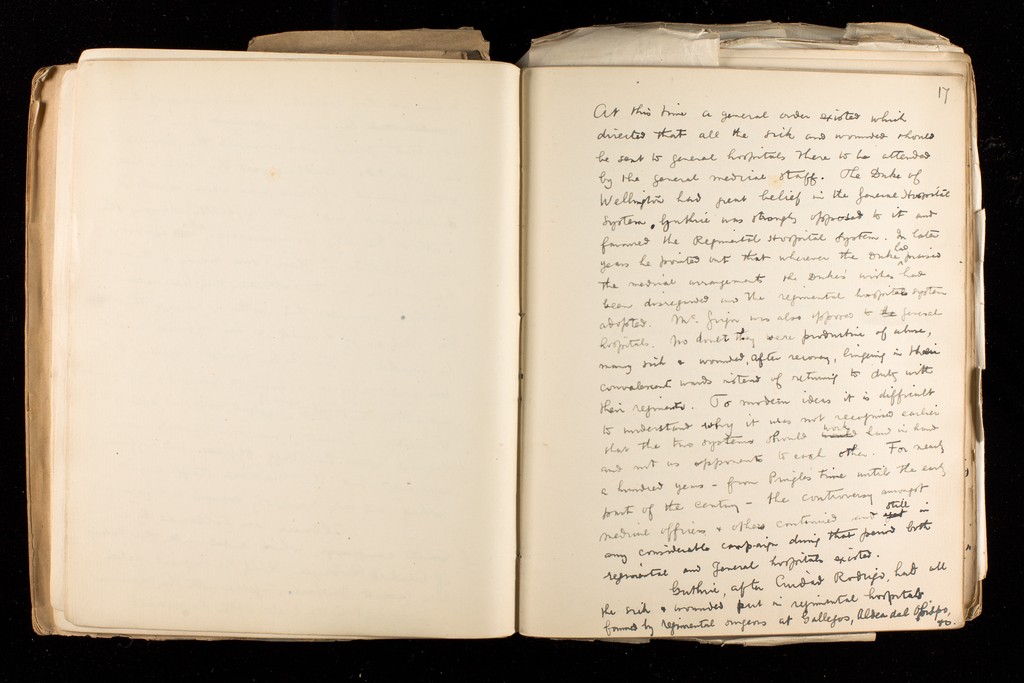 17
At this time a general order existed which
directed that all the sick and wounded should
be sent to general hospitals there to be attended
by the general medical staff. The Duke of
Wellington had great belief in the General Hospital
system. Guthrie was strongly opposed to it and
favoured the Regimental Hospital System. In later
years he pointed out that wherever the Duke had praised
the medical arrangements the Duke's wishes had
been disregarded and the regimental hospital system
adopted. Mc. Grigor was also opposed to the general
hospitals. No doubt they were productive of abuse,
many sick & wounded, after recovery, lingering in their
convalescent wards instead of returning to duty with
their regiments. To modern ideas it is difficult
to understand why it was not recognised earlier
that the two systems should work hand in hand
and not as opponents to each other. For nearly
a hundred years - from Pringle's time until the early
part of the century - the controversy amongst
medical officers & others continued and still in
any considerable campaign during that period both
regimental and General hospitals existed.
Guthrie, after Ciudad Rodrigo, had all
the sick & wounded put in regimental hospitals
formed by regimental surgeons at Gallegos, Aldea del Obispo,
&c.